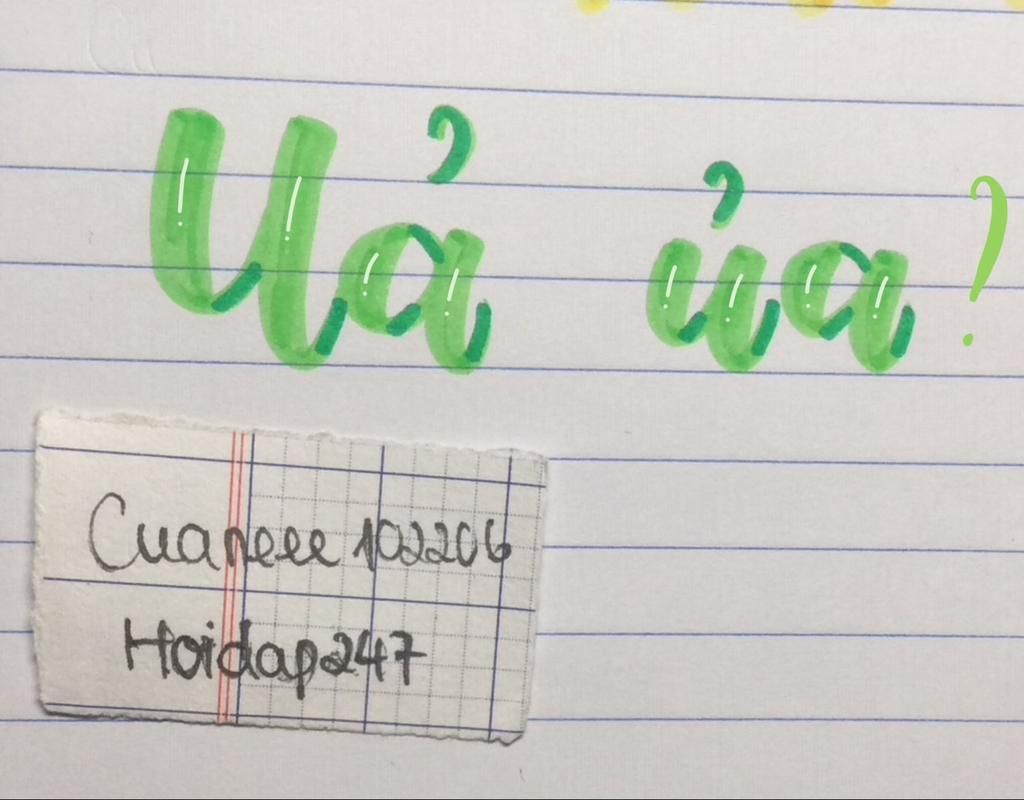 Uả ủa?
Cuaneee102206
Hoidap247